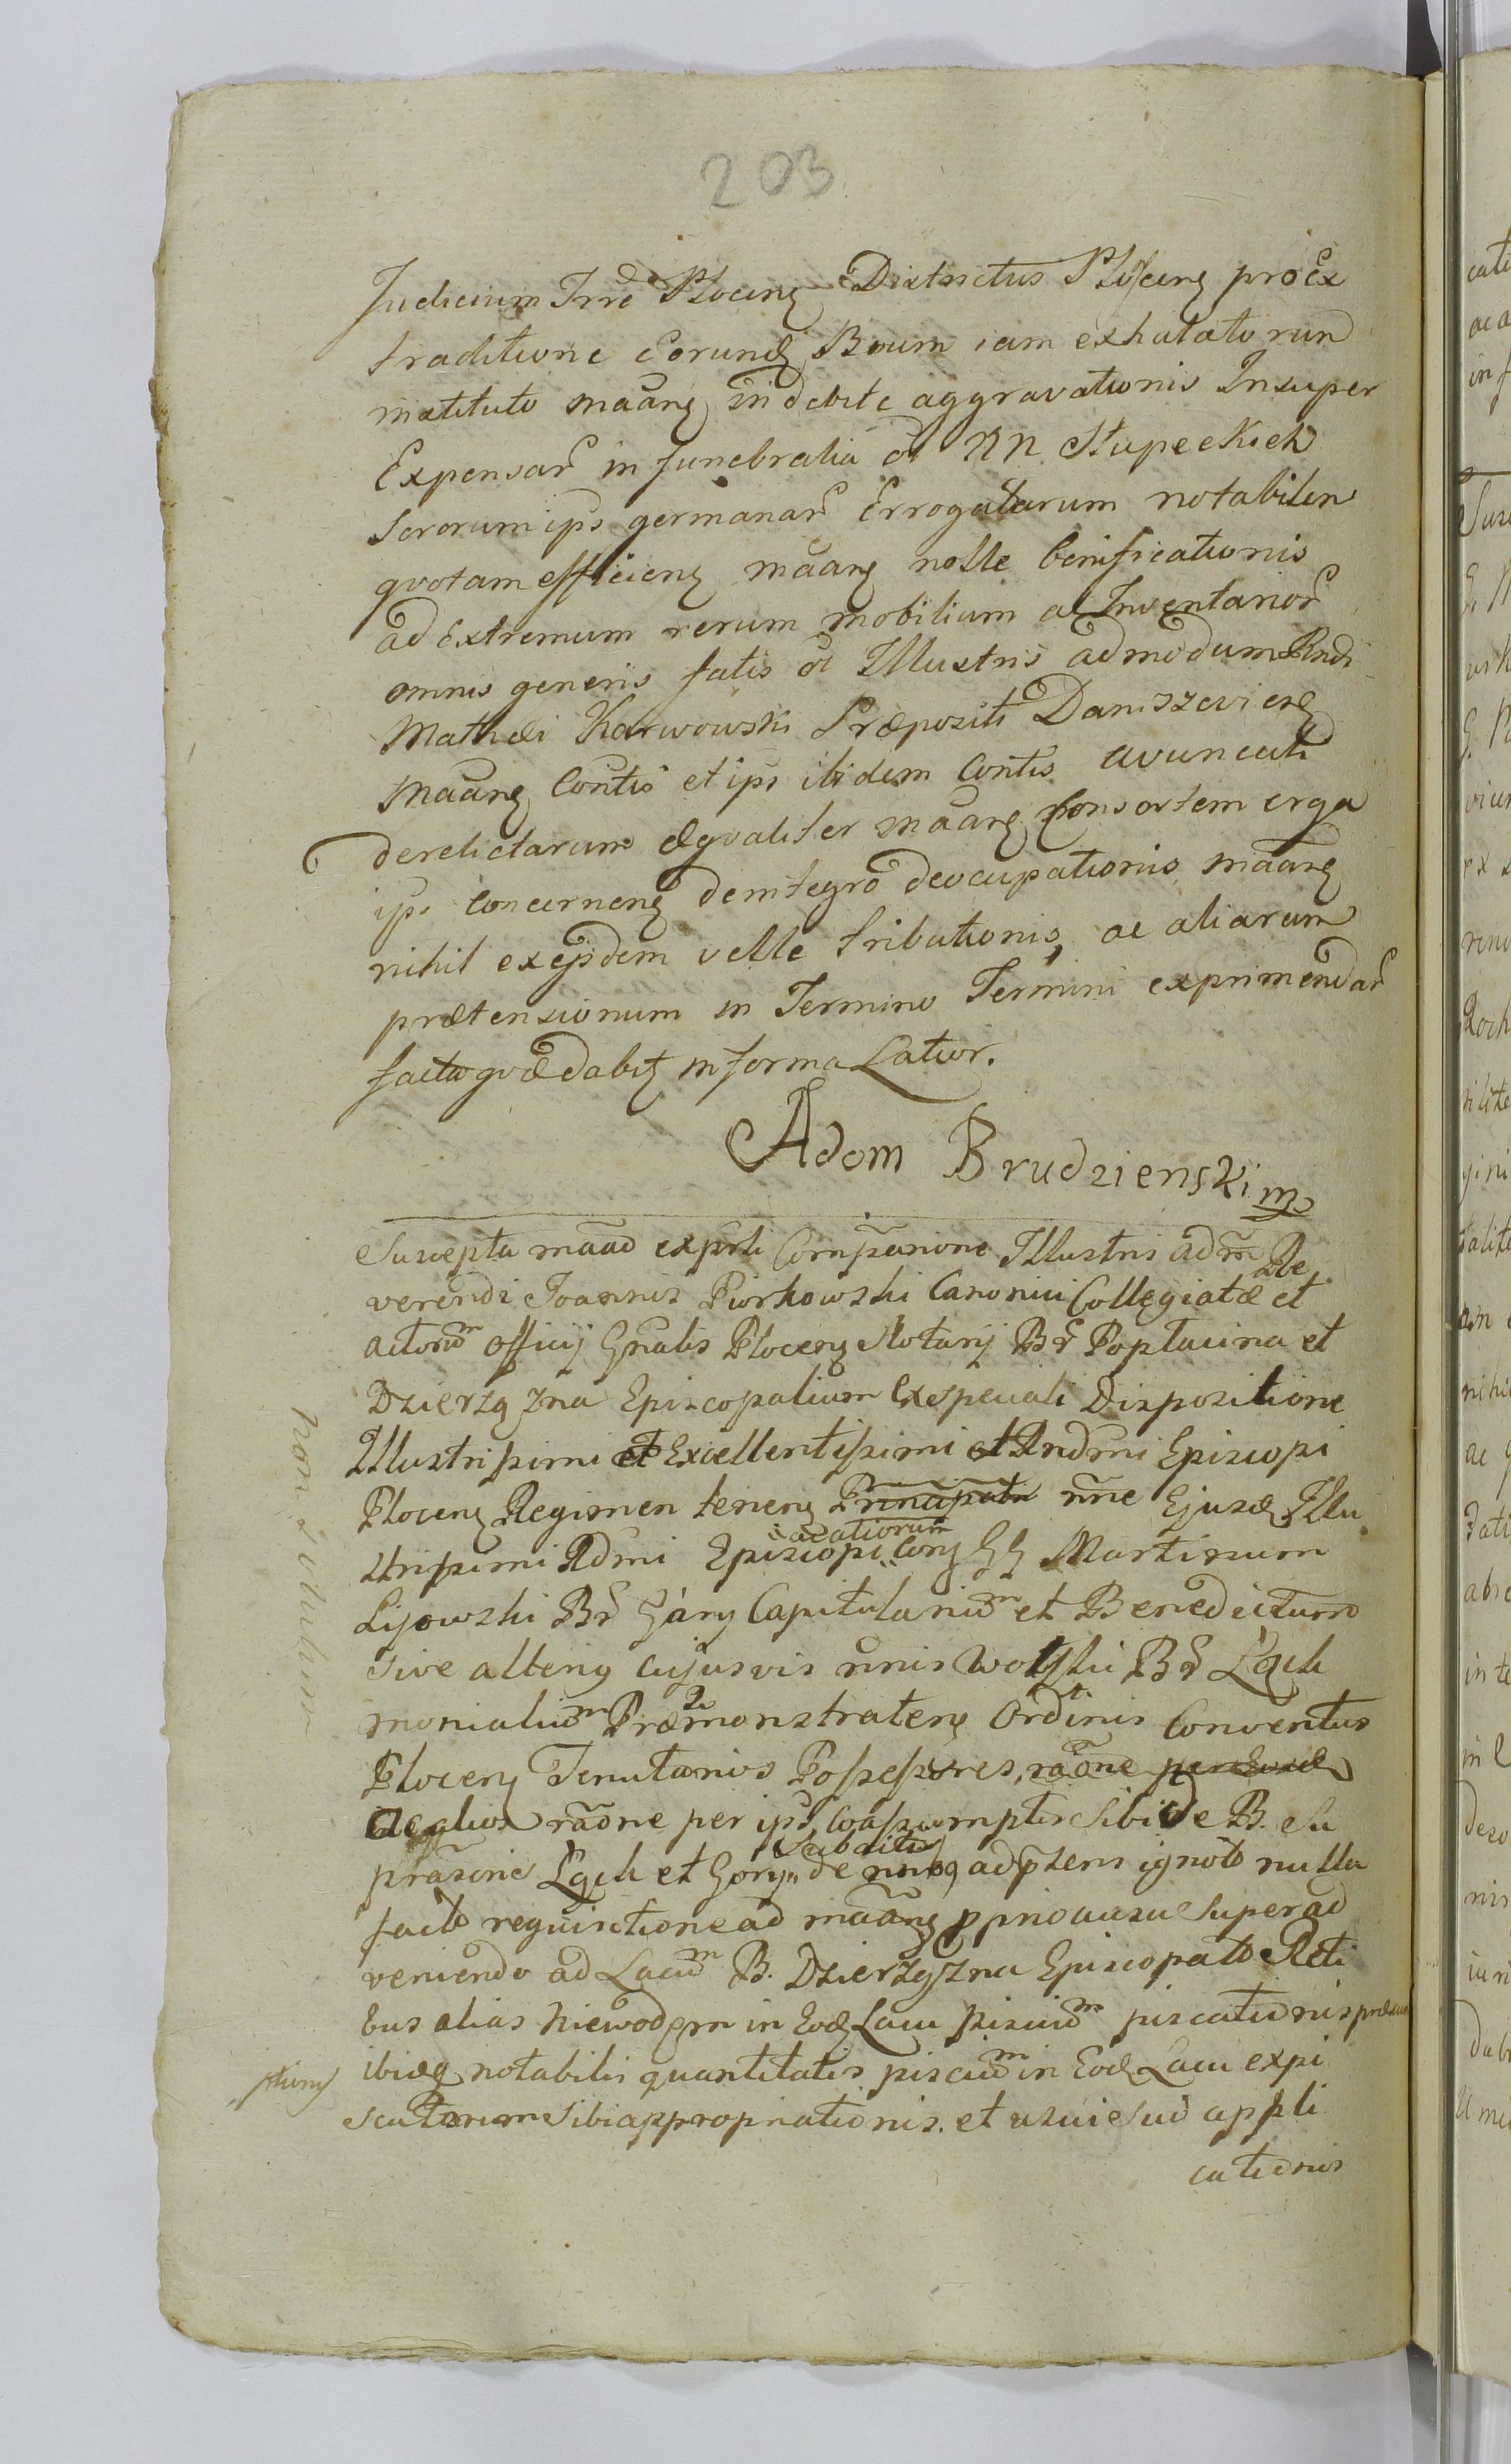 203
Judicium Trrē Plocenȝ Districtus Plocenȝ pro Ex
traditione Eorundȝ Boum iam exhalatorum
instituto māanȝ indebite aggravationis Insuper
Expensar̃ in funebralia ōl NN. Słupeckich
Sororum ips germanar̃ Errogatarum notabilem
qvotam efficienȝ māanȝ nolle benificationis
ad Extremum rerum mobilium ac Inventarior̃
omnis generis fatis ōl Illustris admodum Rndi
Mathæi Karwowski Præpositi Daniszeviensȝ
māanȝ Contis et ips ibidem Contis avunculi
derelictarum æqvaliter māanȝ Consortem erga
ips concernenȝ deintegro deocupationis māanȝ
nihil ex ejsdem velle tributionis, ac aliarum
prætensionum in Termino Termini exprimendar̃
facta qvæ dabitȝ in forma Latior.
Adom Brudzienski mp
Suscepta māad exprsli Comparitione Illustris adm̃ Re
verendi Joannis Piorkowski Canonici Collegiatæ et
actorū officij Gn̄alis Plocenȝ Notarij Br̄ Popłacina et
Dzierząʒna Episcopalium Ex speciali Dispositione
Illustrissimi et Excellentissimi et Rndmi Episcopi
Plocenȝ Regimen tenenȝ Principalr n̄ne Ejusdȝ Illu
strissimi Rdmi Episcopi ac aliorum Conȝ GG Martinum
Lijowski Br̄ Gáry Capitulariū et Benedictum
sive alteriȝ cujusvis n̄nis Wolski Br̄ Łąck
monialiū Præmonstratenȝ Ordinis Conventus
Plocenȝ Tenutarios Possessores, rāone
ac alios rāone per ips Coāssumptis Sibi de B. Su
prasȝrie Łąck et Gory Subditis de nn̄eȝ ad p̃sens ignotis nulla
facta reqvisitione ad māanȝ p̱ prio ausu Super ad
veniendo ad Lacū B. Dzierzązna Episcopalē Reti
bus alias niewodem in Eodȝ Lacu pisciū piscationis
ibidȝ notabilis quantitatis pisciū in Eodȝ Lacu expi
scatorum Sibi appropriationis. et usui Suo appli
cationis
non solutum